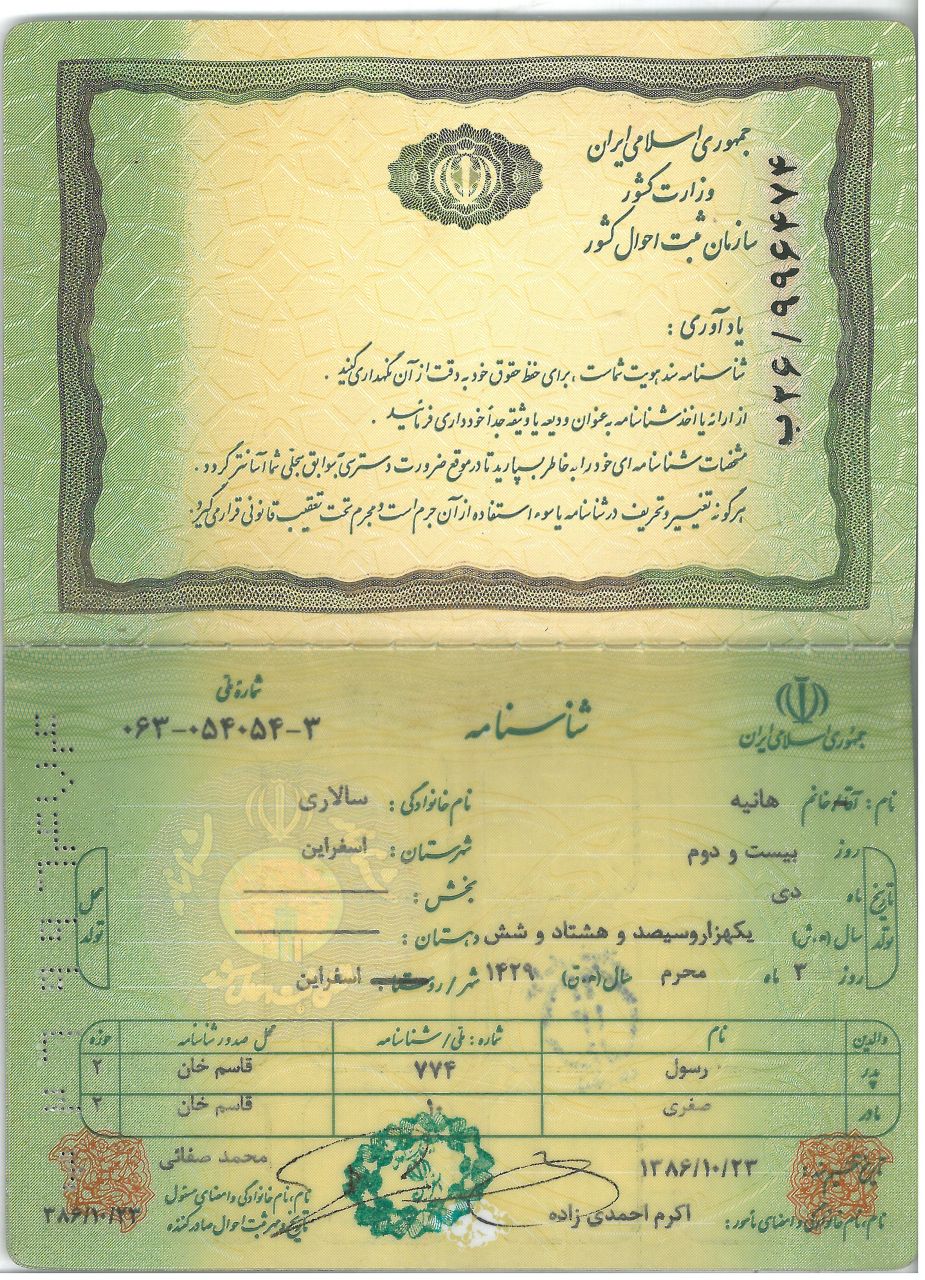 جمهوری اسلامی ایران
وزارت کشور
سازمان ثبت احوال کشور
ب۲۶/۹۹۶۴۷۴
یادآوری :
شناسنامه سند هویت شماست ، برای حفظ حقوق خود به دقت از آن نگهداری کنید .
از ارائه یا اخذ شناسنامه به عنوان ودیعه یا وثیقه جداً خودداری فرمائید .
مشخصات شناسنامه ای خود را به خاطر بسپارید تا در موقع ضرورت دسترسی به سوابق سجلی شما آسانتر گردد .
هرگونه تغییر و تحریف در شناسنامه یا سوء استفاده از آن جرم است و مجرم تحت تعقیب قانونی قرار می گیرد .
جمهوری اسلامی ایران
شناسنامه
شمارهٔ ملی
۰۶۳-۰۵۴۰۵۴-۳
نام : آقا/خانم هانیه نام خانوادگی : سالاری
تاریخ تولد
روز بیست و دوم شهرستان : اسفراین
ماه دی بخش :
سال (ه.ش) یکهزاروسیصد و هشتاد و شش دهستان :
روز ۳ ماه محرم سال (ه.ق) ۱۴۲۹ شهر/روستا اسفراین
محل تولد
والدین نام شماره : ملی/شناسنامه محل صدور شناسنامه حوزه
پدر رسول ۷۷۴ قاسم خان ۲
مادر صغری ۱۰ قاسم خان ۲
تاریخ تنظیم : ۱۳۸۶/۱۰/۲۳ محمد صفائی
نام، نام خانوادگی و امضای مأمور : اکرم احمدی زاده
نام، نام خانوادگی و امضای مسئول
تاریخ و مهر ثبت احوال صادرکننده
۳۸۶/۱۰/۲۳